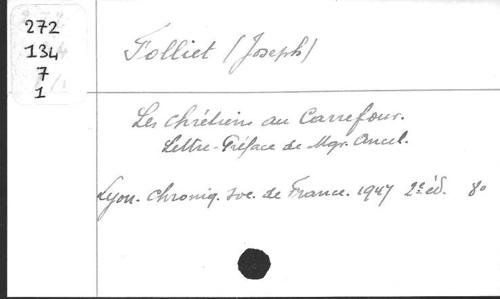 272
134
7
1
Folliet (Joseph)
Les chrétiens au Carrefour.
Lettre-Préface de Mgr. Ancel.
Lyon. Chroniq. soc. de France. 1947 2e éd. 8o